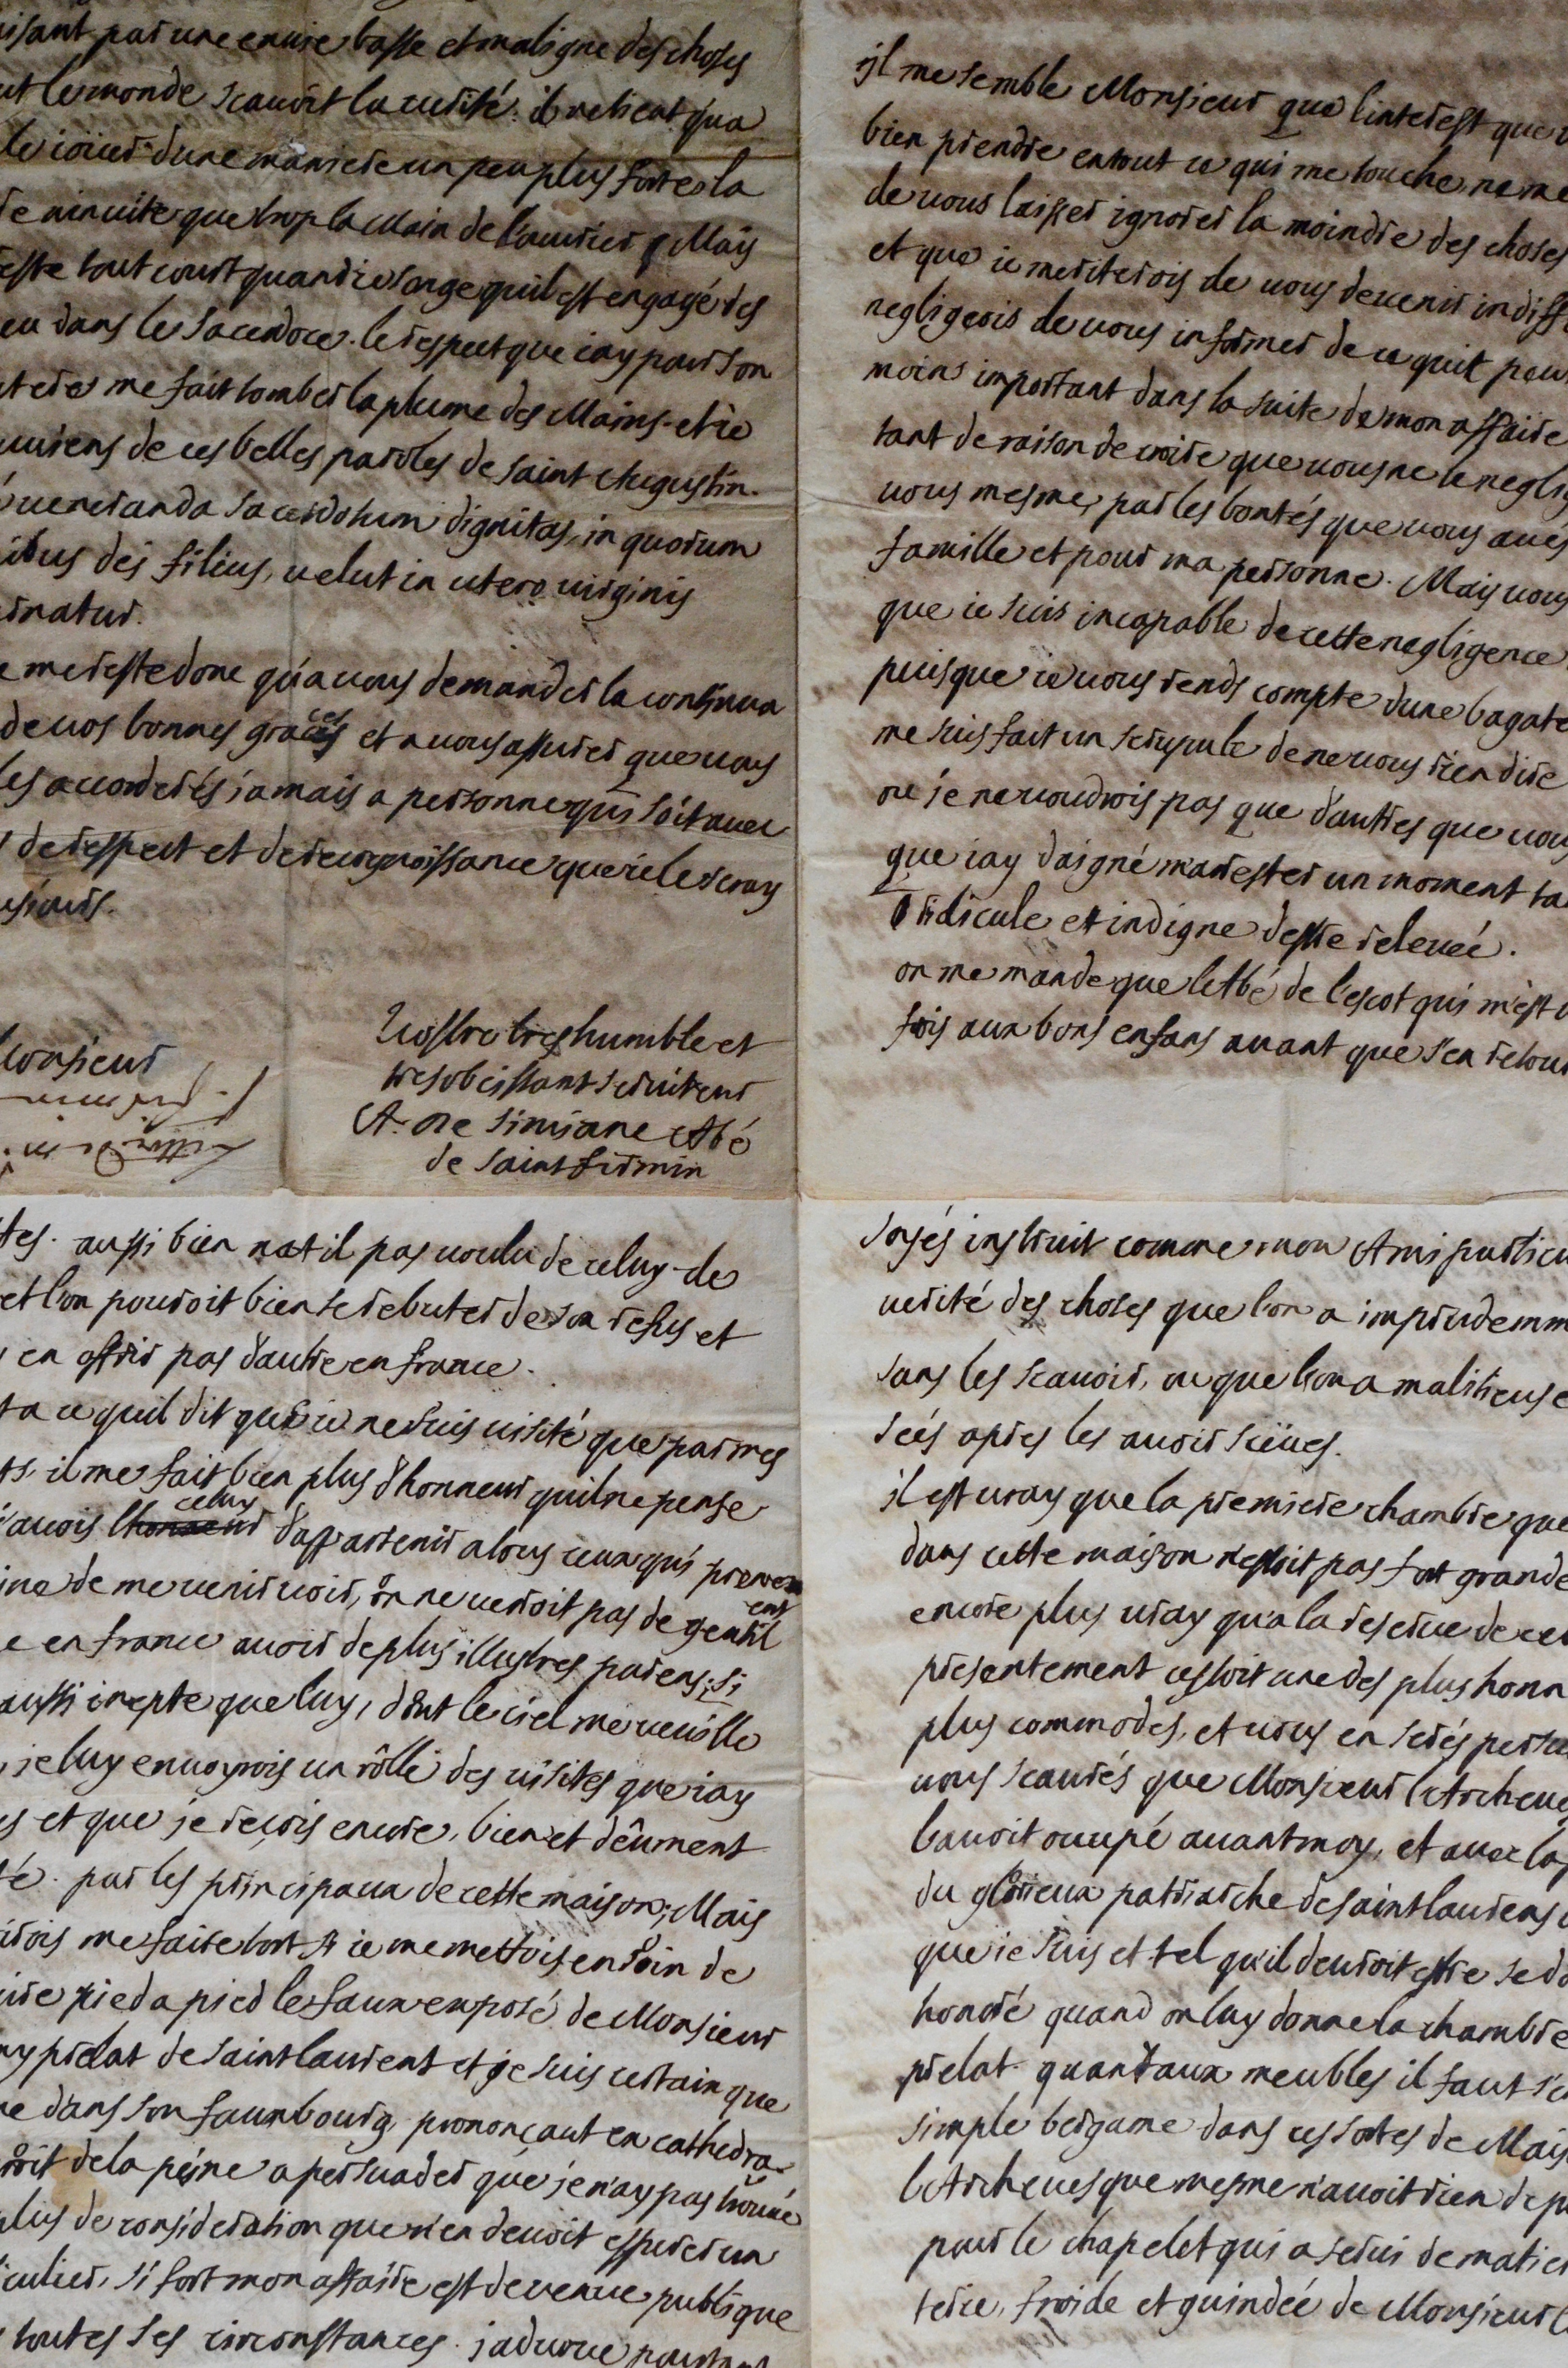 isant par une enuie basse et maligne des choses
ut le monde scauoit la uerité. il ne tient qua
le ioüer dune maniere un peu plus forte la
ninuite que trop la Main de l'ouurier Mais
este tout court quand ie songe quil est engagé des
eu dans le sacerdoce. le respect que iay pour son
tere me fait tomber la plume des Mains et ie
uuiens de ces belles paroles de saint Augustin.
ueneranda sacerdotum dignitas, in quorum
ibus dei filius, uelut in utero uirginis
rnatur.
e me reste donc qu'a uous demander la continua
de uos bonnes graces et a uous assurer que uous
les accorderés jamais a personne qui soit auec
s de respect et de recognoissance que ie le seray
usiours.
Monsieur
Uostre tres humble et
tres obeissant seruiteur
A. De Simiane Abé
de saint firmin
il me semble Monsieur que l'interest que
bien prendre en tout ce qui me touche ne me
de uous laisser ignorer la moindre des choses
et que ie meriterois de uous deuenir indiff
negligeois de uous informer de ce quit peu
moins important dans la suite de mon affaire
tant de raison de croire que uous ne le negli
uous mesme, par les bontés que uous aués
famille et pour ma personne. Mais uous
que ie suis incapable de cette negligence
puisque ie uous rends compte dune bagate
me suis fait un scrupule de ne uous rien dire
ou je ne uoudrois pas que d'autres que uou
que iay daigné m'arester un moment ta
ridicule et indigne destre releuée.
on me mande que l'Abé de l'escot qui m'est u
fois aux bons enfans auant que s'en retour
tes. aussi bien n'at il pas uoulu de celuy-de
et l'on pouroit bien se rebuter de son refus et
en offrir pas d'autre en france.
ta ce quil dit que ie ne suis uisité que par mes
ts, il me fait bien plus d'honneur quil ne pense
j'auois celuy d'appartenir a tous ceux qui prennent
ine de me uenir uoir, on ne uerroit pas de gentil
e en france auoir de plus illustres parens; si
aussi inepte que luy, dont le ciel me ueuille
je luy enuoyrois un rôlle des uisites que iay
s et que je reçois encore, bien et dêument
té par les principaux de cette maison; Mais
irois me faire tort si ie me mettois en soin de
uire pied a pied le faux exposé de Monsieur
ny prelat de saint laurent et je suis certain que
e dans son fauxbourg prononçant en cathedra
roit de la peine a persuader que je n'ay pas trouué
plus de consideration que n'en deuoit esperer un
iculier, si fort mon affaire est deuenue publique
toutes ses circonstances. j'aduoue pourtant
soyés instruit comme mon Ami particu
uerité des choses que l'on a imprudemm
sans les scauoir, ou que l'on a malitieuse
seés apres les auoir sceües.
il est uray que la premiere chambre que
dans cette maison n'estoit pas fort grande
encore plus uray qu'a la reserue de cel
presentement cestoit une des plus honn
plus commodes, et uous en serés persua
uous scaurés que Monsieur l'Archeue
l'auoit occupé auant moy, et auec la p
du glorieux patriarche de saint laurens
que ie suis et tel qu'il deuroit estre se do
honoré quand on luy donne la chambre
prelat. quant aux meubles il faut s'
simple bergame dans ces sortes de Mais
l'Archeuesque mesme n'auoit rien de p
pour le chapelet qui a serui de matier
terie, froide et guindée de Monsieur l